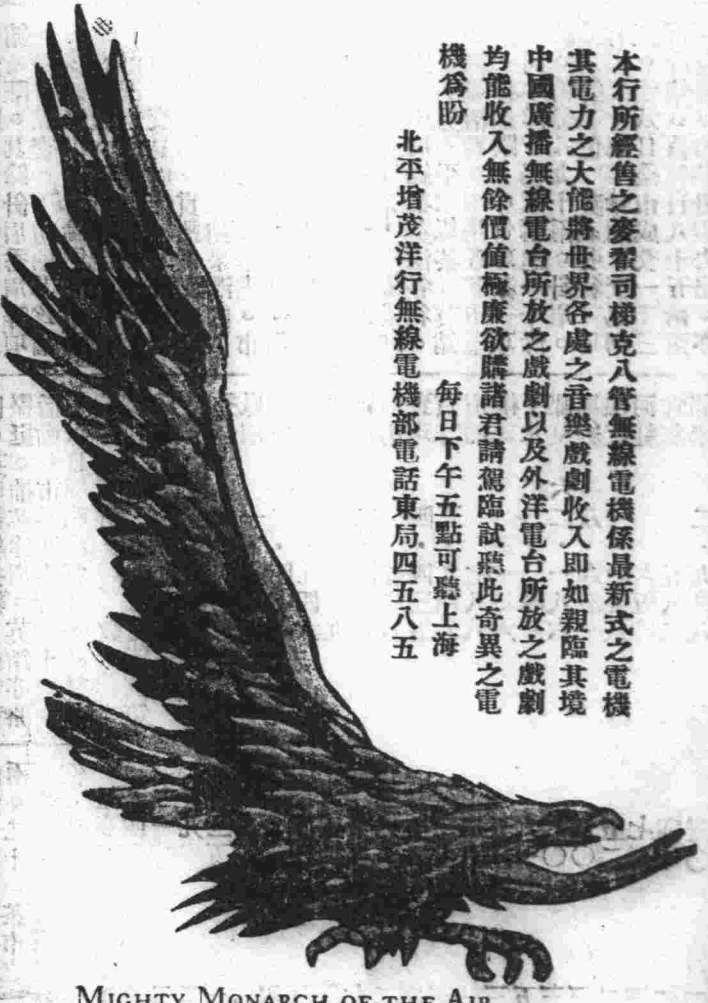 本行所經售之麥瞿司梯克八管無線電機係最新式之電機
其電力之大能將世界各處之音樂戲劇收入即如親臨其境
中國廣播無線電台所放之戲劇以及外洋電台所放之戲劇
均能收入無餘價值極廉欲購諸君請駕臨試聽此奇異之電
機為盼
每日下午五點可聽上海
北平增茂洋行無線電機部電話東局四五八五
MIGHTY MONARCH OF THE AIR